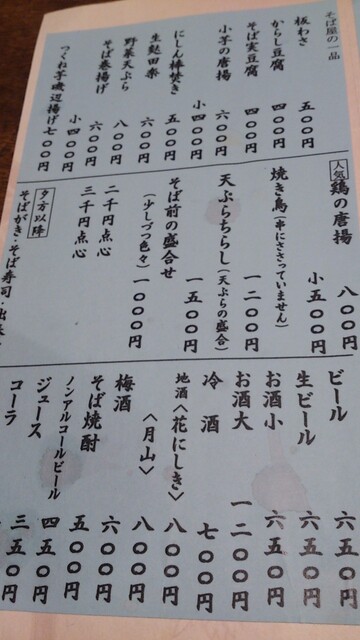 そば屋の一品
板わさ 五〇〇円
からし豆腐 四〇〇円
そば実豆腐 四〇〇円
小芋の唐揚 六〇〇円
小 四〇〇円
にしん棒焚き 五〇〇円
生麩田楽 六〇〇円
野菜天ぷら 八〇〇円
そば巻揚げ 六〇〇円
小 四〇〇円
つくね芋磯辺揚げ 七〇〇円
人気 鶏の唐揚 八〇〇円
小 五〇〇円
焼き鳥(串にささっていません) 一二〇〇円
天ぷらちらし(天ぷらの盛合) 一五〇〇円
そば前の盛合せ
(少しづつ色々) 一〇〇〇円
二千円点心
三千円点心
夕方以降
そばがき・そば寿司・出
ビール 六五〇円
生ビール 六五〇円
お酒小 六五〇円
お酒大 一二〇〇円
冷酒 七〇〇円
地酒〈花にしき〉 八〇〇円
〈月山〉 八〇〇円
梅酒 六〇〇円
そば焼酎 五〇〇円
ノンアルコールビール 四五〇円
ジュース 三五〇円
コーラ 三五〇円